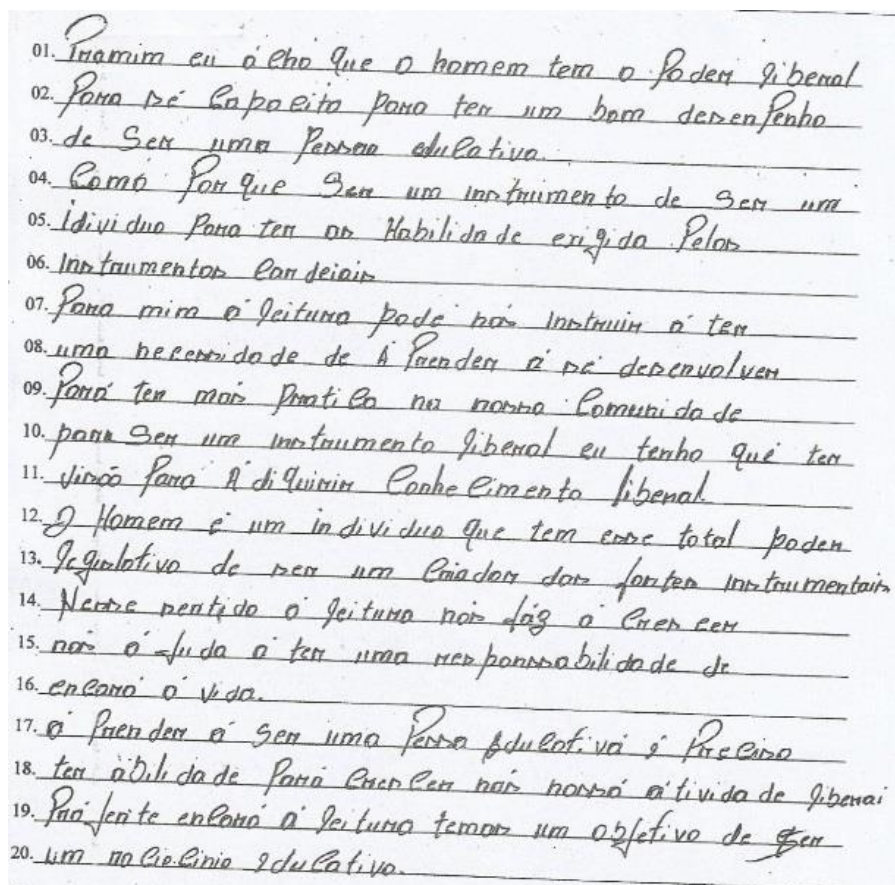 01. Pramim eu ólho que o homem tem o Poder liberal
02. Para sé Capacito para ter um bom desenPenho
03. de Ser uma Pessoa educativa.
04. Como Por que Ser um instruimento de Ser um
05. idividuo Para ter as Habilidade exigida Pelos
06. Instruimentos
07. Para mim á leitura podé nós Instruir á ter
08. uma necessidade de À Prender á sé desenvolver
09. Pará ter mais Pratica na nossa Comunidade
10. para Ser um instruimento liberal eu tenho qué ter
11. visão Pará Á diQuirir Conhecimento liberal
12. O Homem é um individuo que tem esse total poder
13. legislativo de ser um Criador das fontes instrumentais
14. Nesse sentido á leitura nós fáz á Crescer
15. nós á Juda á ter uma responssabilidade de
16. encará á vida.
17. á Prender á Ser uma Pessoa Educativá é Preciso
18. ter àbilidade Pará Crescer nós nossá átividade liberai
19. Prá frente encará á leitura temos um objetivo de Ser
20. um raciocinio educativo.